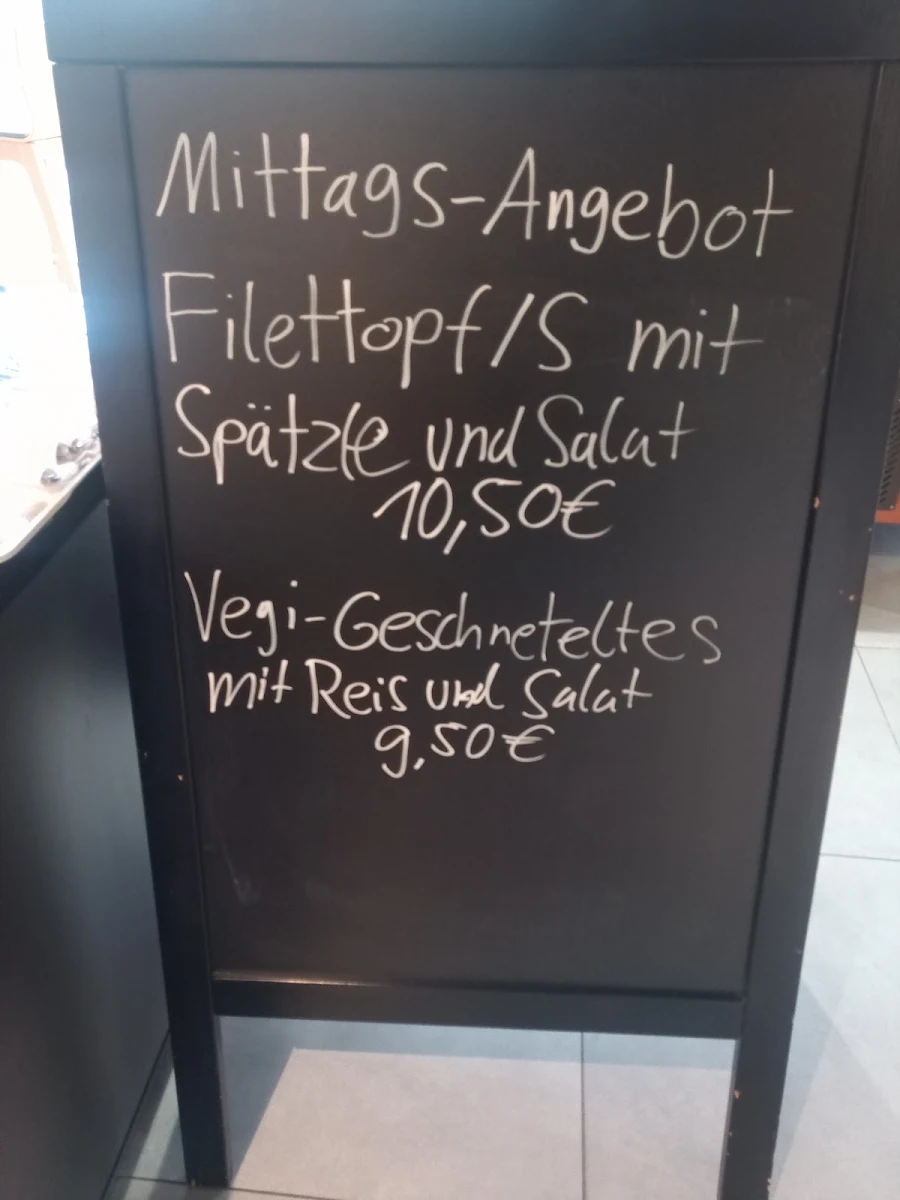 Mittags-Angebot
Filettopf/S mit
Spätzle und Salat
10,50€
Vegi-Geschneteltes
mit Reis und Salat
9,50€